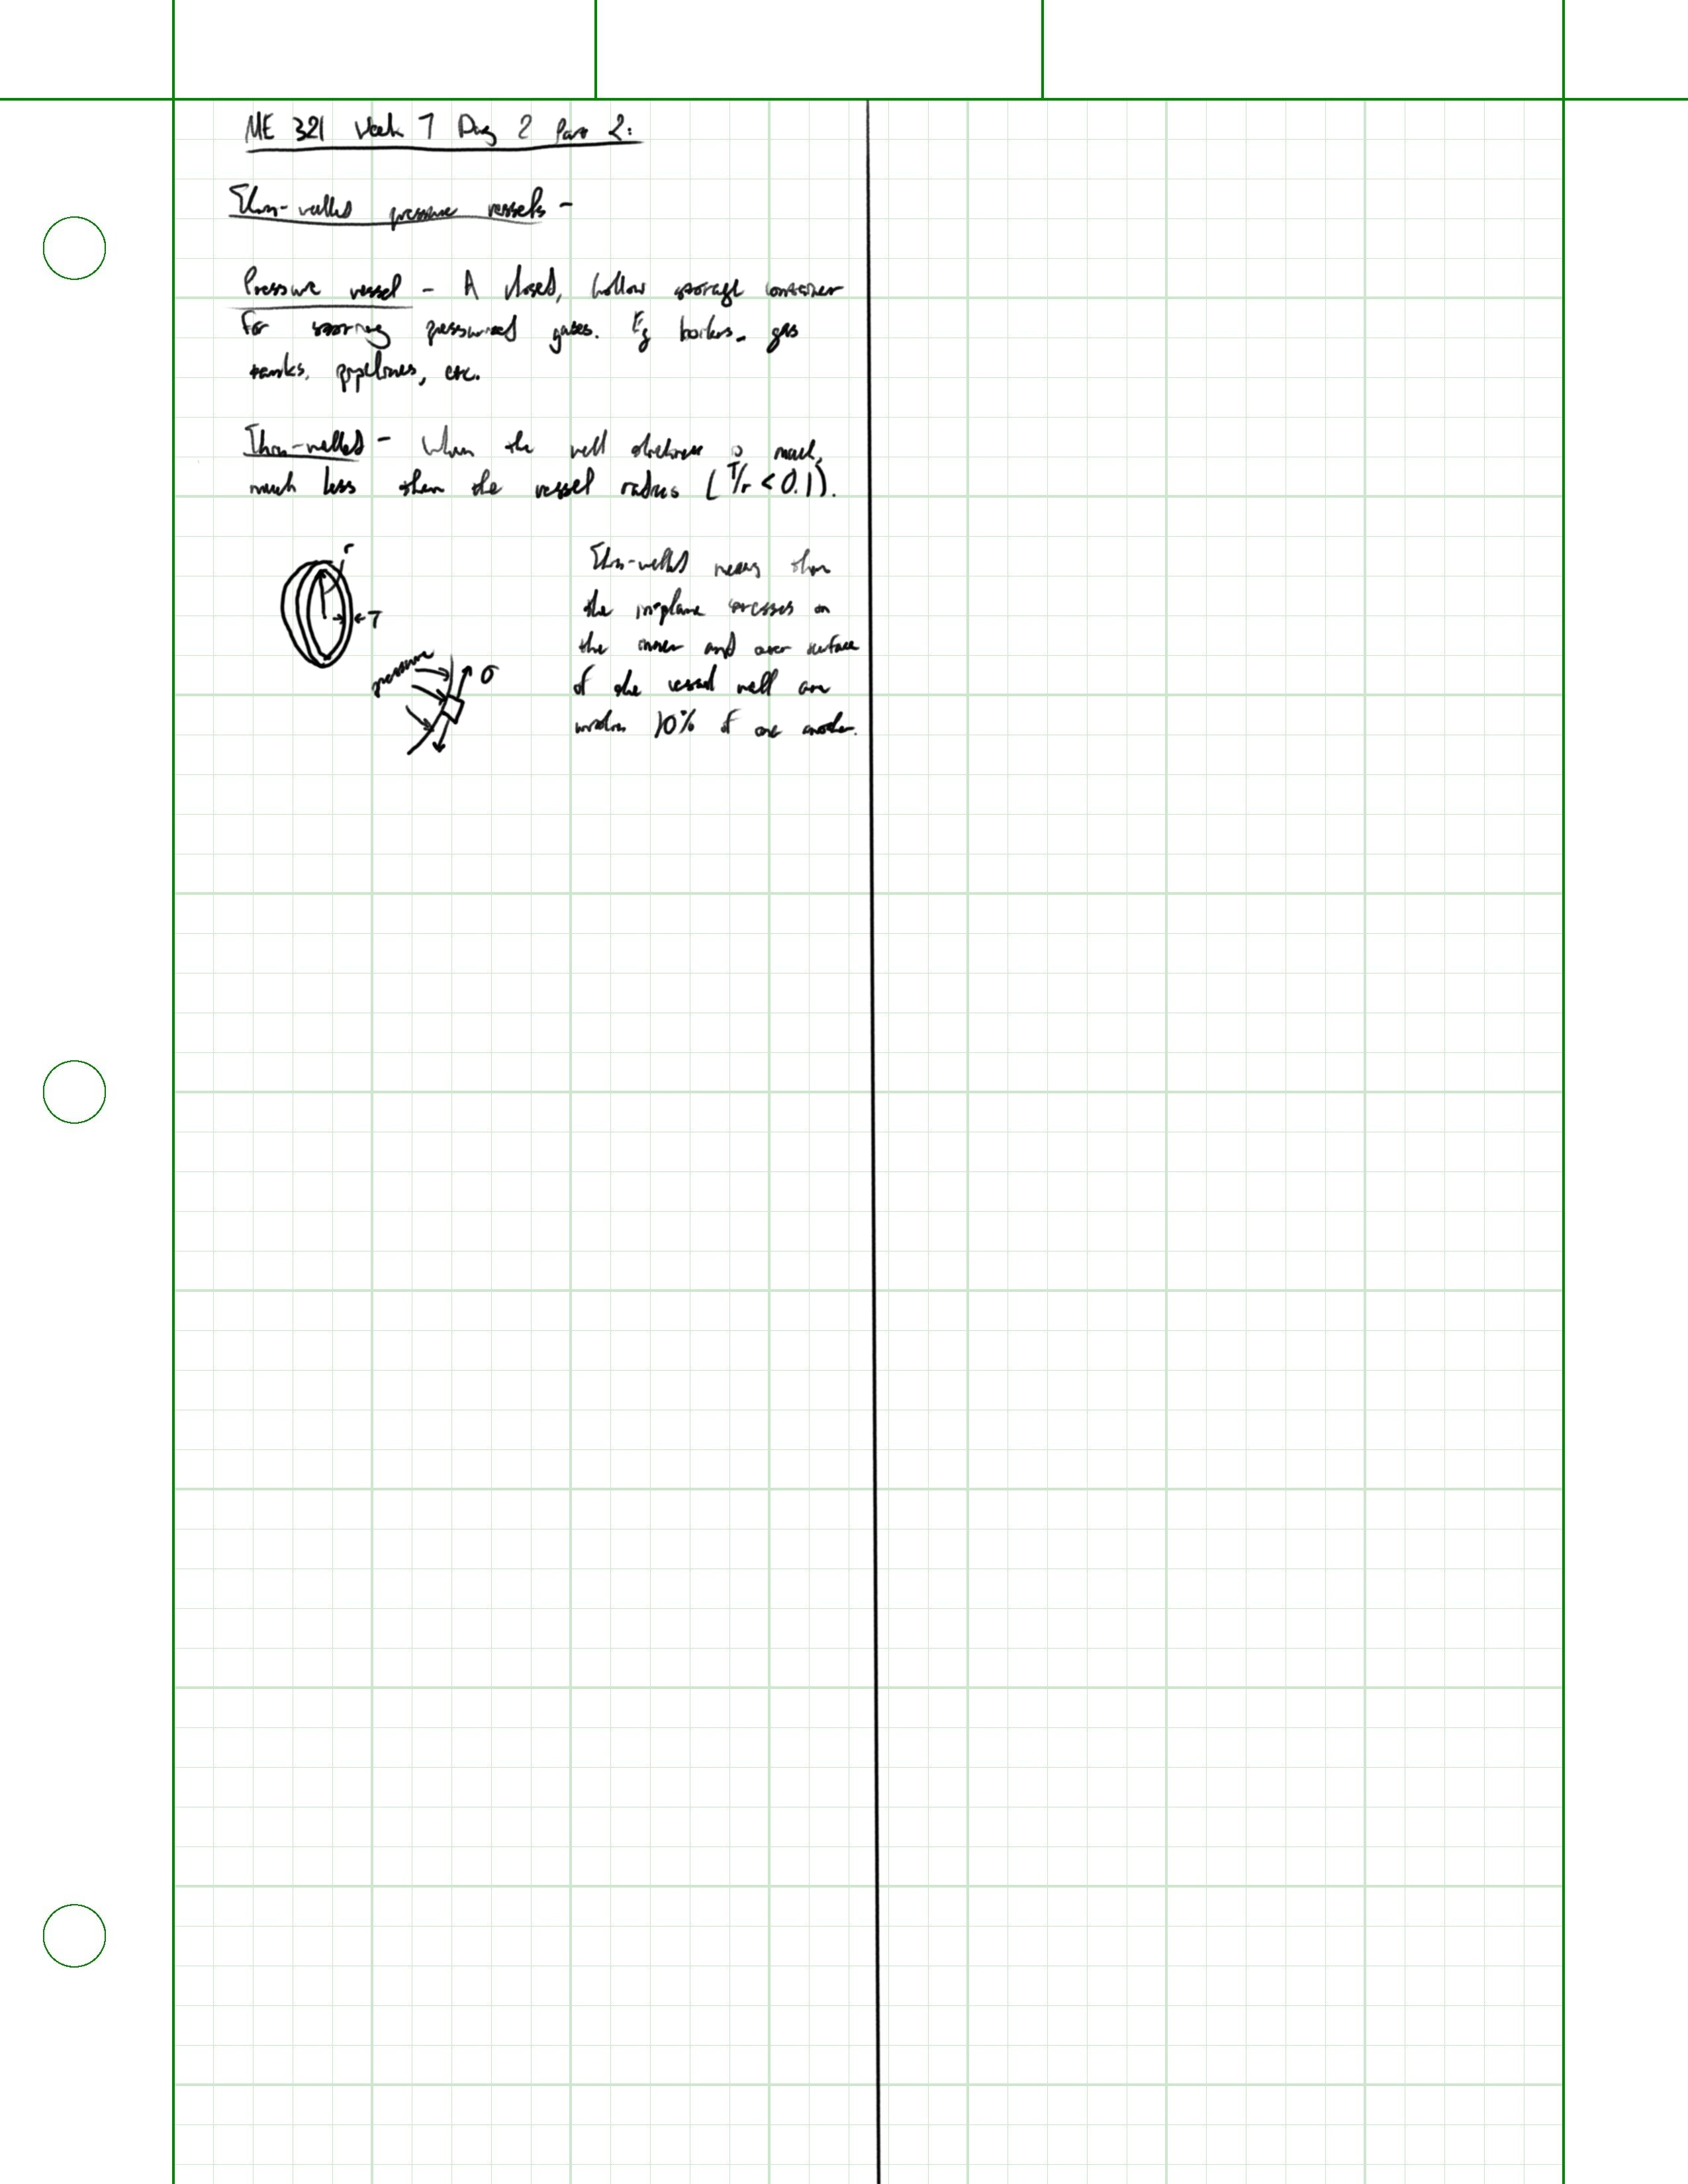 ME 321 Week 7 Day 2 Part 2:
Thin-walled pressure vessels -
Pressure vessel - A closed, hollow storage container
for storing pressurized gases. Eg boilers, gas
tanks, pipelines, etc.
Thin-walled - When the wall thickness is much,
much less than the vessel radius (T/r < 0.1).
r
T
pressure
σ
Thin-walled means that
the in-plane stresses on
the inner and outer surface
of the vessel wall are
within 10% of one another.